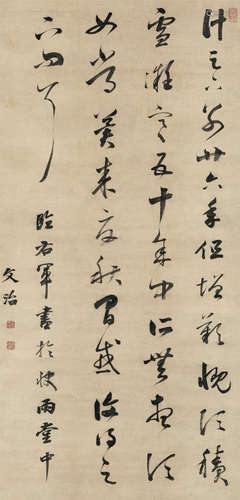 計与足下別廿六年但增歎慨頃積
雪凝寒五十年中所無想頃
如常冀來夏秋間或復得足
下問耳
臨右軍書於快雨堂中
文治